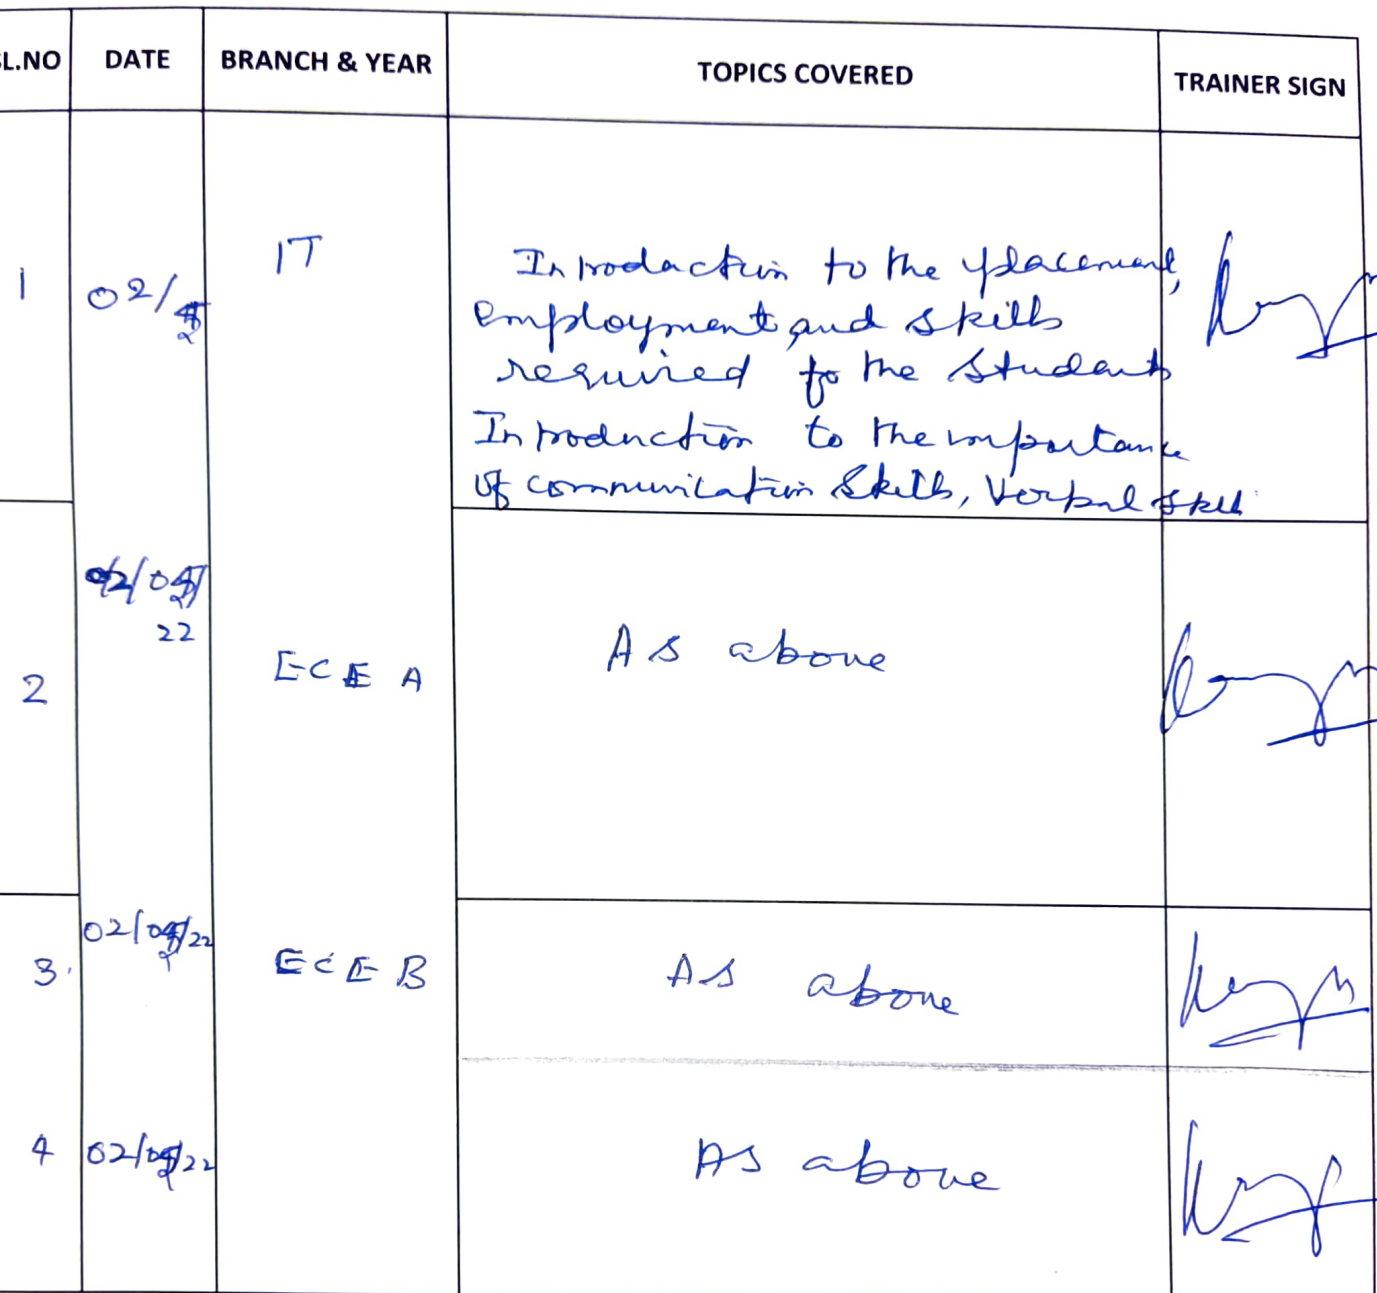 SL.NO DATE BRANCH & YEAR TOPICS COVERED TRAINER SIGN
1 02/ IT Introduction to the placement,
employment, and skills
required to the students
Introduction to the importance
of communication skills, Verbal skill
2 02/ 22 ECE A As above
3. 02/ /22 ECE B As above
4 02/ /22 As above